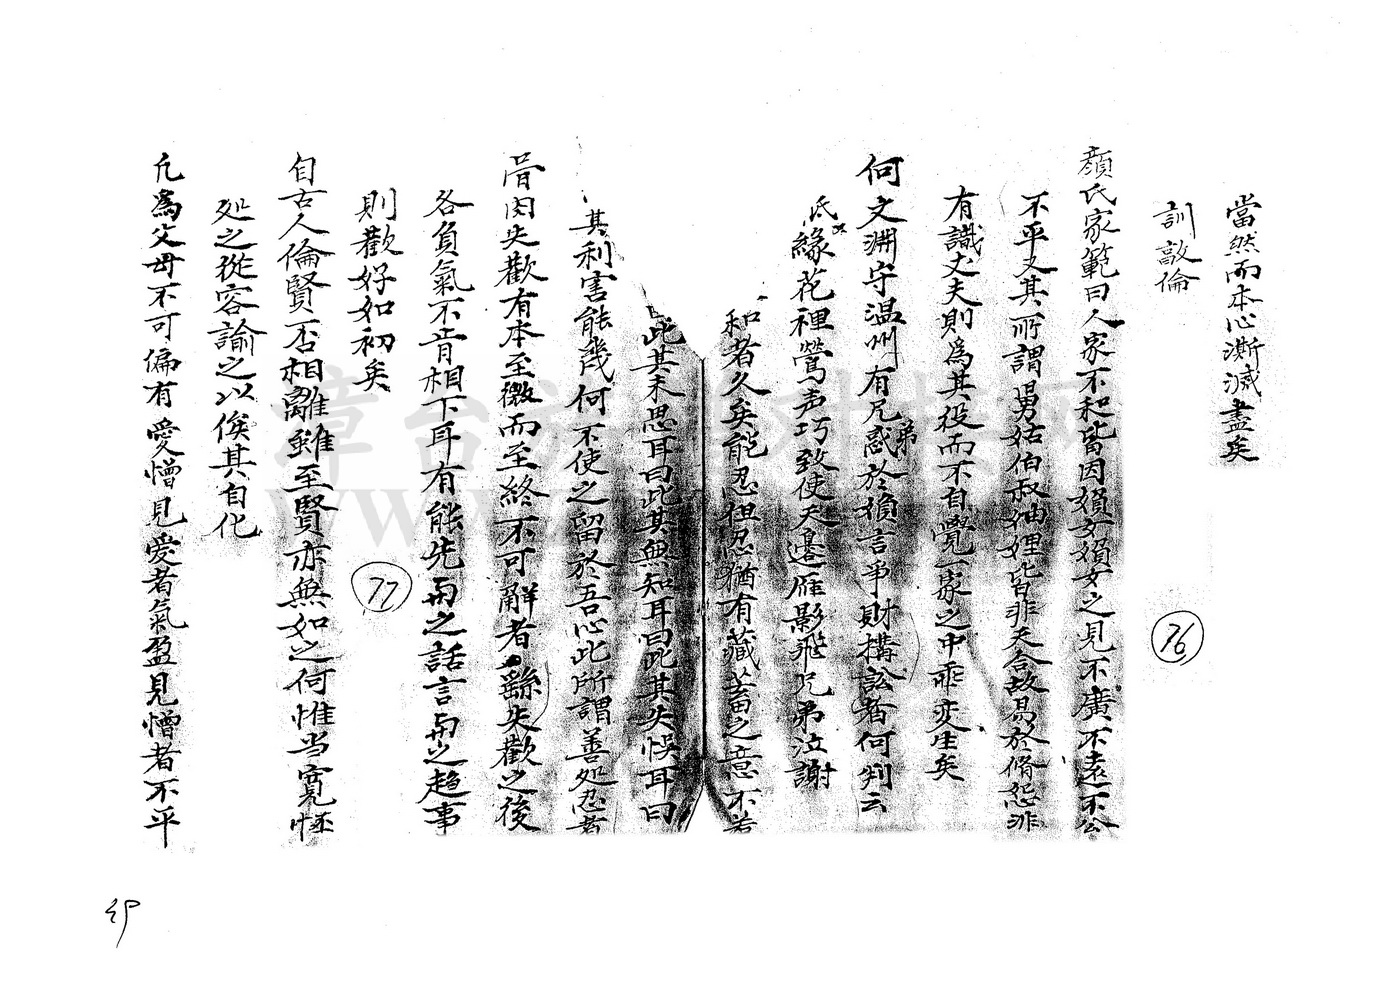 當然而本心澌滅盡矣
訓敦倫
76
顏氏家範曰人家不和皆因婦女婦女之見不廣不遠不公
不平又其所謂男姑伯叔妯娌皆非天合故易於脩怨非
有識丈夫則為其役而不自覺一家之中乖变生矣
何文渊守温州有兄弟惑於婦言爭財搆訟者何判云
緣花裡鶯声巧致使天邊雁影飛兄弟泣謝
和者久矣能忍但忍猶有藏蓄之意不若
此其未思耳曰此其無知耳曰此其失悞耳曰
其利害能幾何不使之留於吾心此所謂善処忍者
骨肉失歡有本至微而至終不可解者繇失歡之後
各負氣不肯相下耳有能先與之話言與之趨事
則歡好如初矣
77
自古人倫賢否相離雖至賢亦無如之何惟当寬怪
処之從容諭之以俟其自化
凡為父母不可偏有愛憎見愛者氣盈見憎者不平